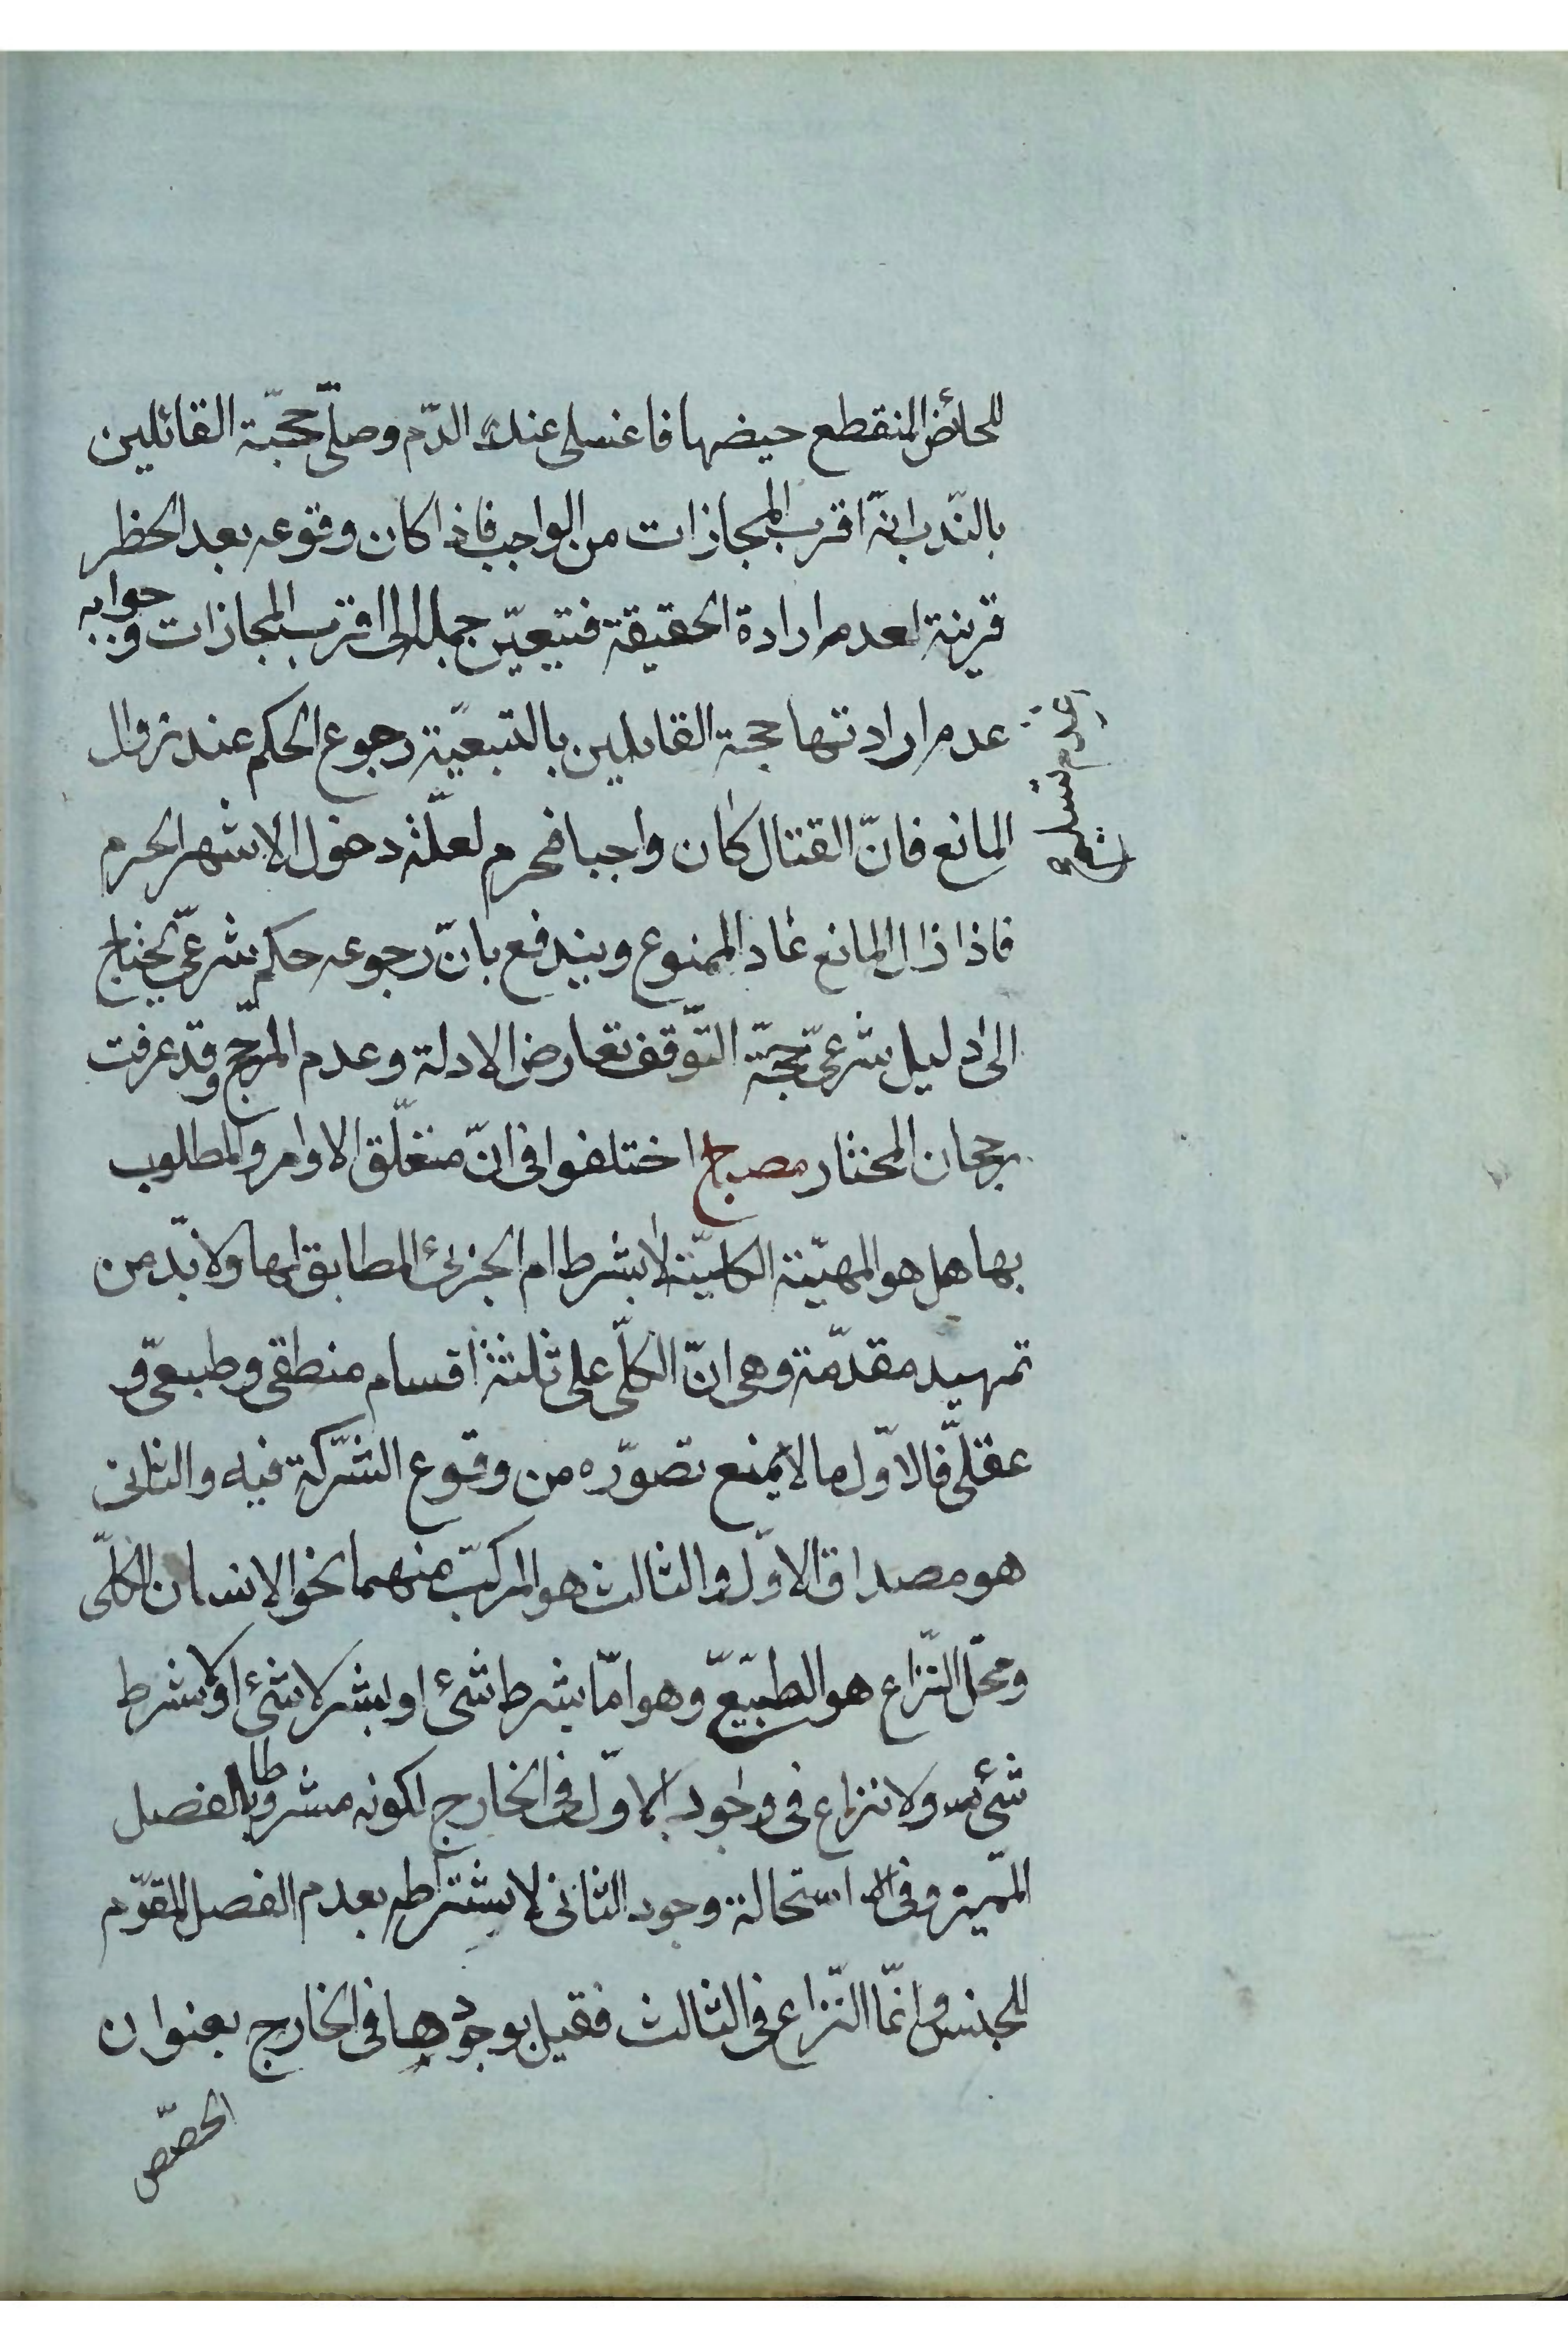 للحائض المنقطع حيضها فاغسلى عنك الدّم وصلّى حجّة القائلين
بالنّدب انّه اقرب المجازات من الواجب فاذا كان وقوعه بعد الحظر
قرينة لعدم ارادة الحقيقة فتيعيّن حمله الى اقرب المجازات و جوابه
عدم ارادتها حجة القايلين بالتبعيّة رجوع الحكم عند زوال
عدم تسليم
المانع فانّ القتال كان واجبا فحرم لعلّة دخول الاشهر الحرم
فاذا ذال المانع عاد الممنوع ويندفع بانّ رجوعه حكم شرعىّ يحتاج
الى دليل شرعىّ حجّة التّوقف تعارض الادلة وعدم المرجّح وقد عرفت
رجحان المختار مصباح اختلفوا فى انّ متعلّق الاوامر والمطلوب
بها هل هو المهيّة الكليّة لابشرط ام الجزئى المطابق لها ولابّد من
تمهيد مقدّمة وهى انّ الكلّى على ثلثة اقسام منطقى وطبيعىّ و
عقلّى فالاوّل ما لا يمنع تصوّره من وقوع الشّركة فيه والثانى
هو مصداق الاوّل والثالث هو المركّب منهما نحو الانسان الكلّى
ومحّل النّزاع هو الطبيّعىّ وهو امّا بشرط شئ او بشرلا شئ اولابشرط
شئ ولا نزاع فى وجود الاوّل فى الخارج لكونه مشروطا بالفصل
المّميز وفى استحالة وجود الثانى لاشتراطه بعدم الفصل المقوّم
للجنس وانّما النّزاع فى الثالث فقيل بوجودها فى الخارج بعنوان
الحصّص